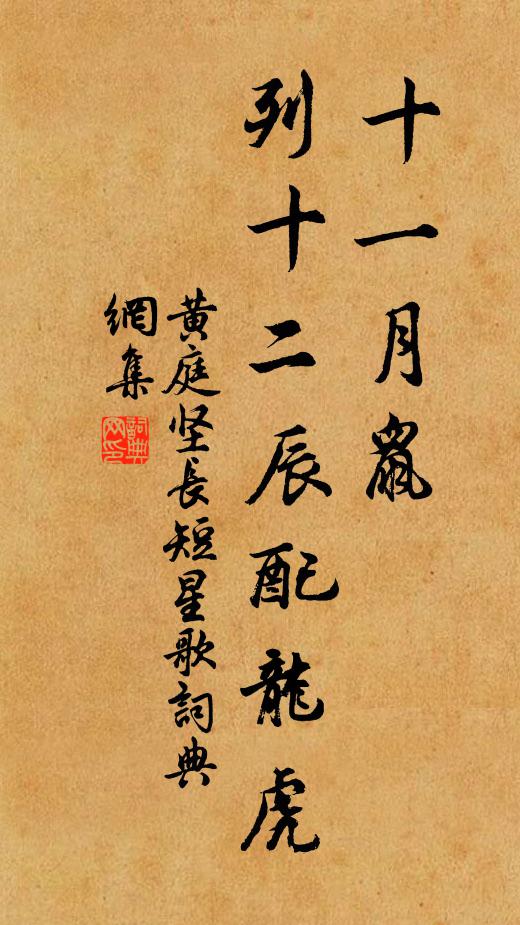 十一月鼠
列十二辰配龍虎
黄庭坚長短星歌詞典
網集
詞典网印